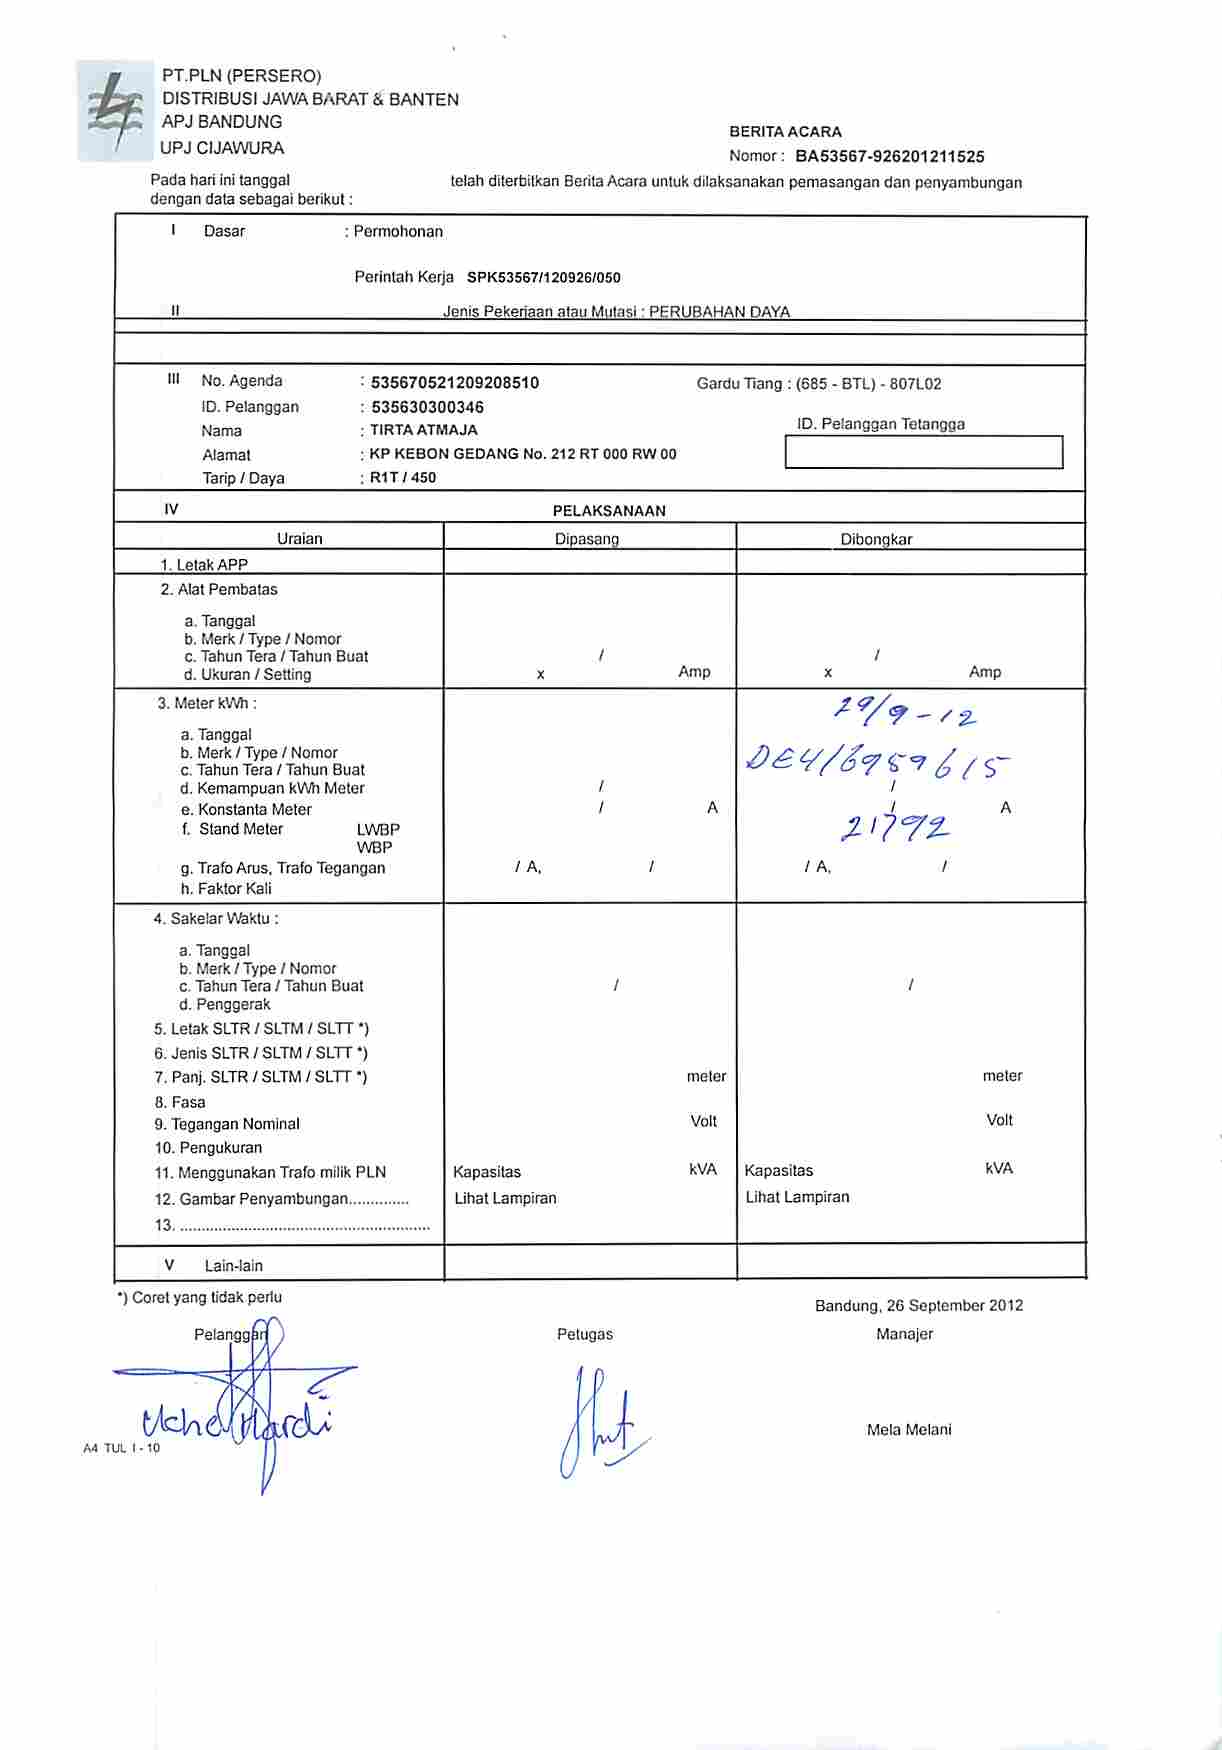 PT.PLN (PERSERO)
DISTRIBUSI JAWA BARAT & BANTEN
APJ BANDUNG
UPJ CIJAWURA
BERITA ACARA
Nomor : BA53567-926201211525
Pada hari ini tanggal telah diterbitkan Berita Acara untuk dilaksanakan pemasangan dan penyambungan
dengan data sebagai berikut :
I Dasar : Permohonan
Perintah Kerja SPK53567/120926/050
II Jenis Pekerjaan atau Mutasi : PERUBAHAN DAYA
III No. Agenda : 535670521209208510 Gardu Tiang : (685 - BTL) - 807L02
ID. Pelanggan : 535630300346
ID. Pelanggan Tetangga
Nama : TIRTA ATMAJA
Alamat : KP KEBON GEDANG No. 212 RT 000 RW 00
Tarip / Daya : R1T / 450
IV PELAKSANAAN
Uraian Dipasang Dibongkar
1. Letak APP
2. Alat Pembatas
a. Tanggal
b. Merk / Type / Nomor
c. Tahun Tera / Tahun Buat / /
d. Ukuran / Setting x Amp x Amp
3. Meter kWh :
29/9-12
a. Tanggal
b. Merk / Type / Nomor DE4/6959615
c. Tahun Tera / Tahun Buat
d. Kemampuan kWh Meter / /
e. Konstanta Meter / A / A
f. Stand Meter LWBP 21792
WBP
g. Trafo Arus, Trafo Tegangan / A, / / A, /
h. Faktor Kali
4. Sakelar Waktu :
a. Tanggal
b. Merk / Type / Nomor
c. Tahun Tera / Tahun Buat / /
d. Penggerak
5. Letak SLTR / SLTM / SLTT *)
6. Jenis SLTR / SLTM / SLTT *)
7. Panj. SLTR / SLTM / SLTT *) meter meter
8. Fasa
9. Tegangan Nominal Volt Volt
10. Pengukuran
11. Menggunakan Trafo milik PLN Kapasitas kVA Kapasitas kVA
12. Gambar Penyambungan.............. Lihat Lampiran Lihat Lampiran
13. ..........................................................
V Lain-lain
*) Coret yang tidak perlu
Bandung, 26 September 2012
Pelanggan Petugas Manajer
Hardi
Mela Melani
A4 TUL I - 10